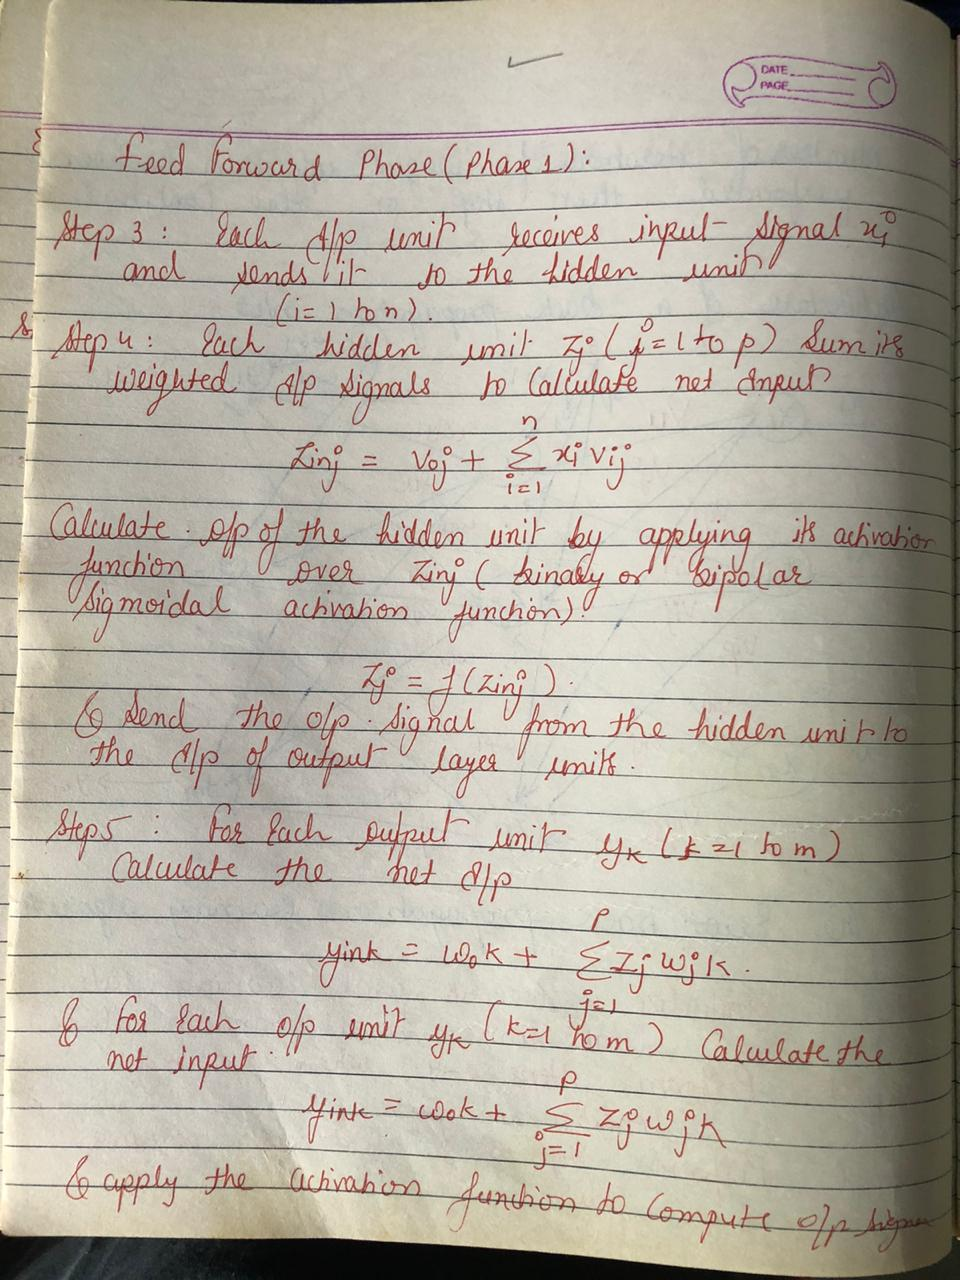 DATE
PAGE
Feed Forward Phase (Phase 1):
Step 3: Each I/p unit receives input signal xi
and sends it to the hidden unit
(i=1 to n).
Step 4: Each hidden unit Zj (j=1 to p) Sum its
weighted I/p signals to Calculate net Input
Zinj = Voj + Σ xi Vij
n
i=1
Calculate o/p of the hidden unit by applying its activation
function over Zinj (binary or bipolar
Sigmoidal activation function).
Zj = f(Zinj).
& Send the o/p signal from the hidden unit to
the I/p of output layer units.
Step 5: For Each output unit yk (k=1 to m)
Calculate the net I/p
P
yink = wok + Σ Zj wjk.
j=1
& For Each o/p unit yk (k=1 to m) Calculate the
net input.
P
yink = wok + Σ Zj wjk
j=1
& apply the activation function to Compute o/p